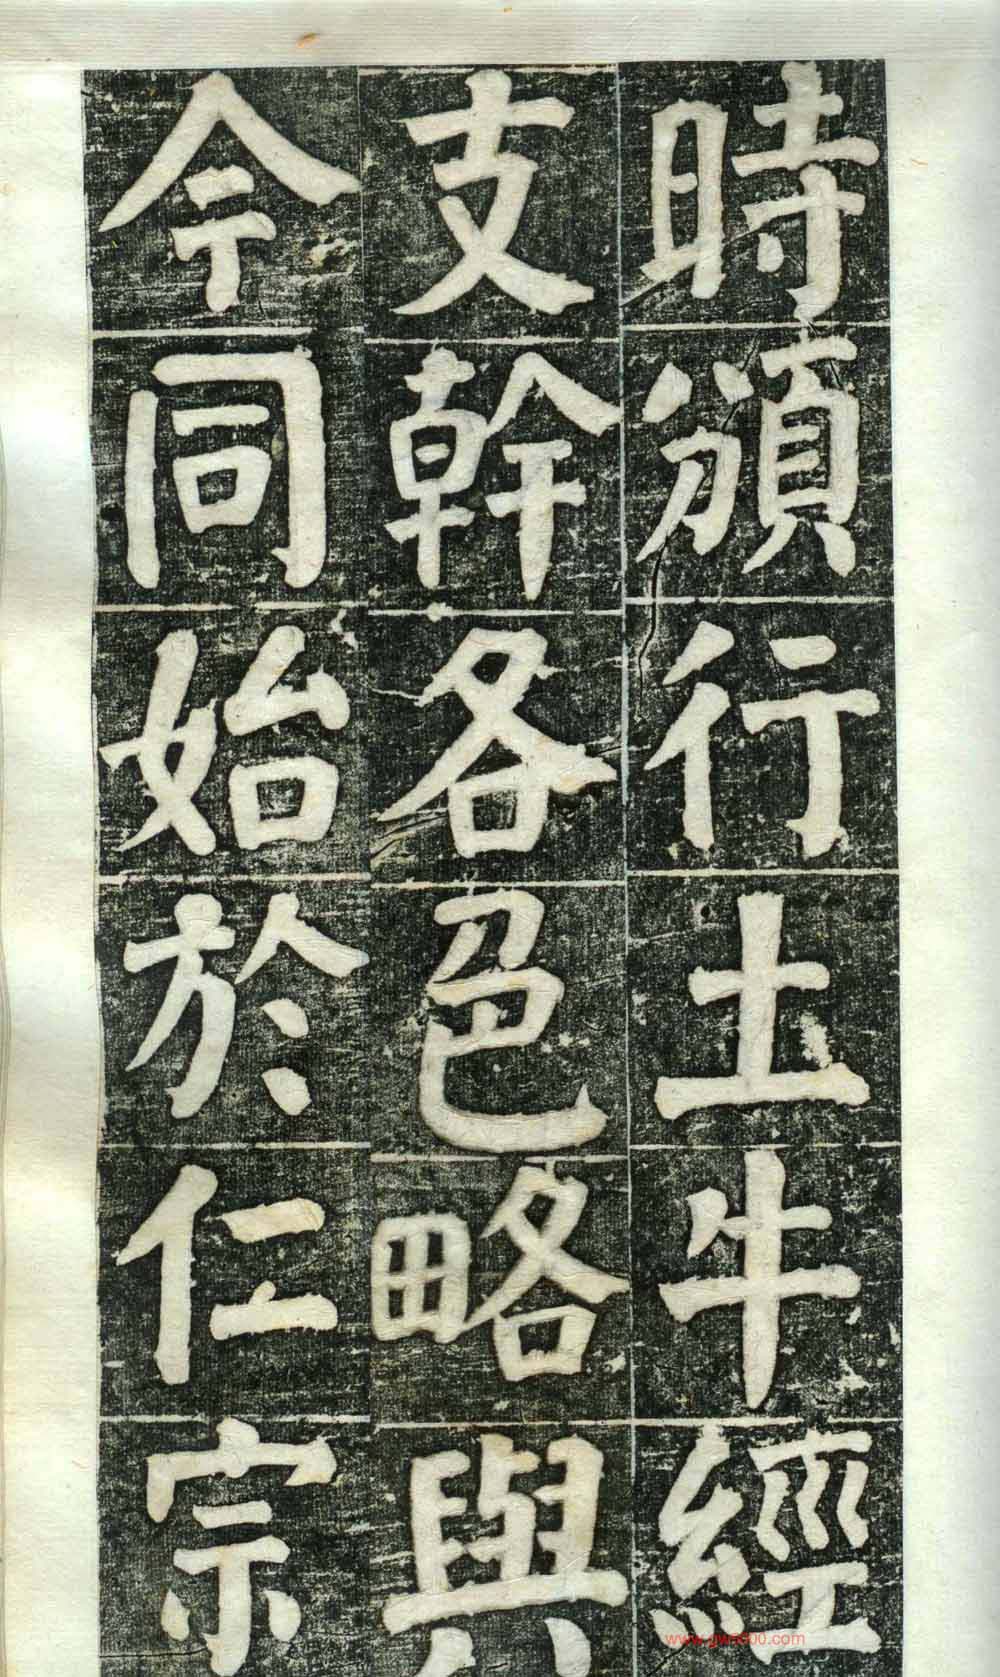 時頒行土牛經
支幹各色略與
今同始於仁宗
www.gw5000.com